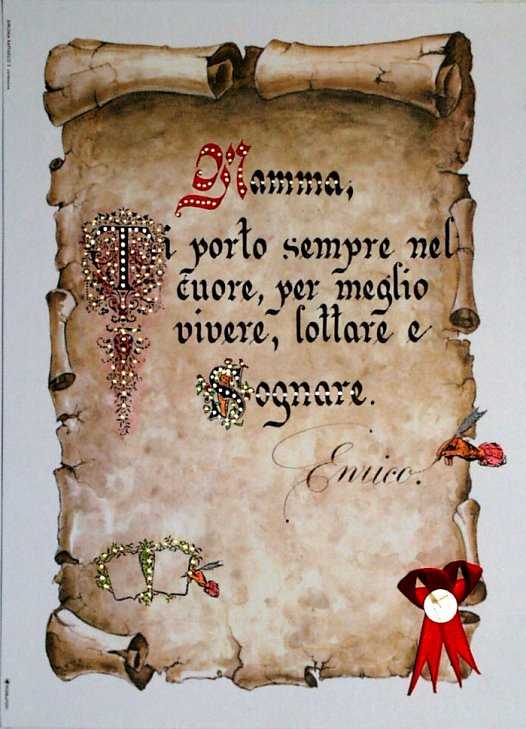 Mamma,
Ti porto sempre nel
cuore, per meglio
vivere, lottare e
Sognare.
Enrico.